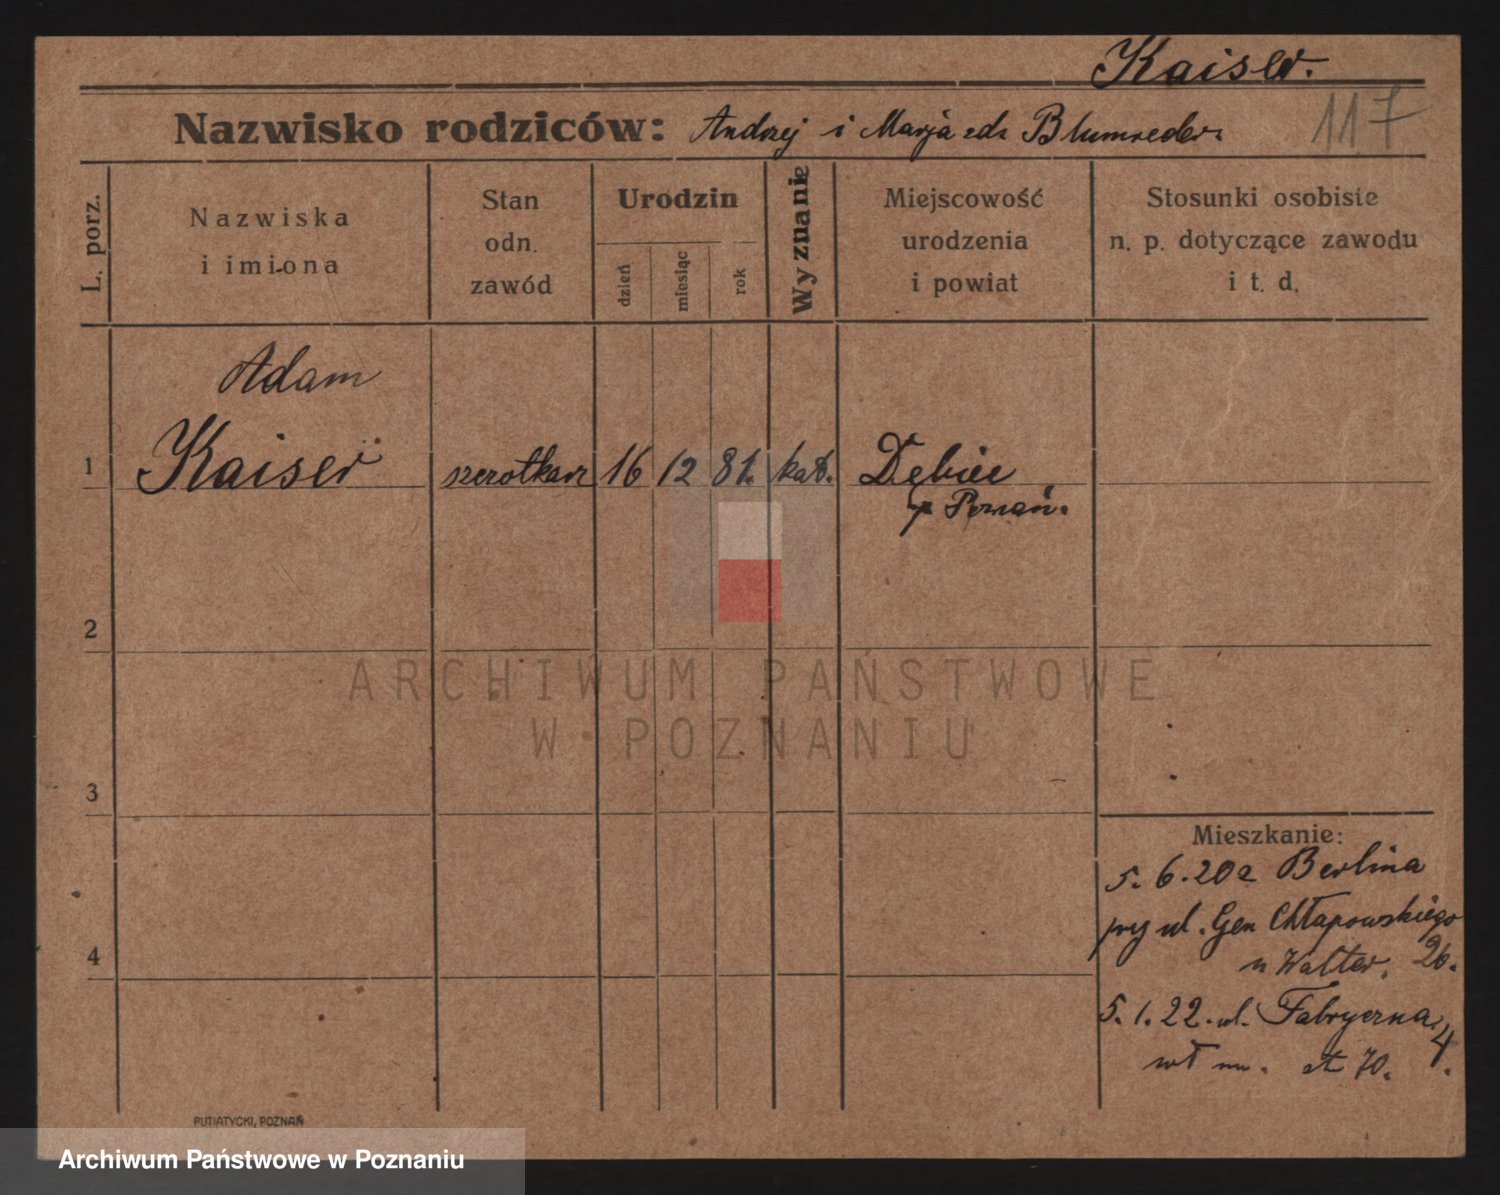 Kaiser.
117
Nazwisko rodziców: Andrzej i Marja zd. Blumreder
L. porz.
Nazwiska
i imiona
Stan
odn.
zawód
Urodzin
dzień
miesiąc
rok
Wyznanie
Miejscowość
urodzenia
i powiat
Stosunki osobiste
n. p. dotyczące zawodu
i t. d.
Adam
1 Kaiser 16 12 81. kat. Dębiec
p Poznań.
2
3
4
Mieszkanie:
5.6.20 z Berlina
przy ul. Gen Chłapowskiego
u Walter. 26.
5.1.22. ul. Fabryczna
4.
70.
ARCHIWUM PAŃSTWOWE
W POZNANIU
PUTIATYCKI, POZNAŃ
Archiwum Państwowe w Poznaniu